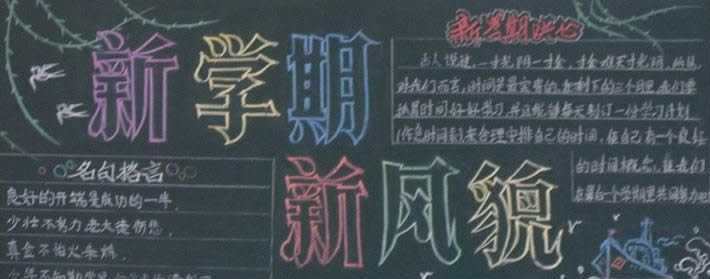 新学期
新风貌
新学期决心
古人说过，一寸光阴一寸金，寸金难买寸光阴，所以
对我们而言，时间是最宝贵的，在剩下的三个月里，我们要
抓紧时间好好学习，并且能够每天制订一份学习计划
作息时间表来合理中排自己的时间，使自己有一个良好
的时间概念，让我们
在最后一个学期里共同努力吧
名句格言
良好的开端是成功的一半．
少壮不努力老大徒伤悲．
真金不怕火来烧．